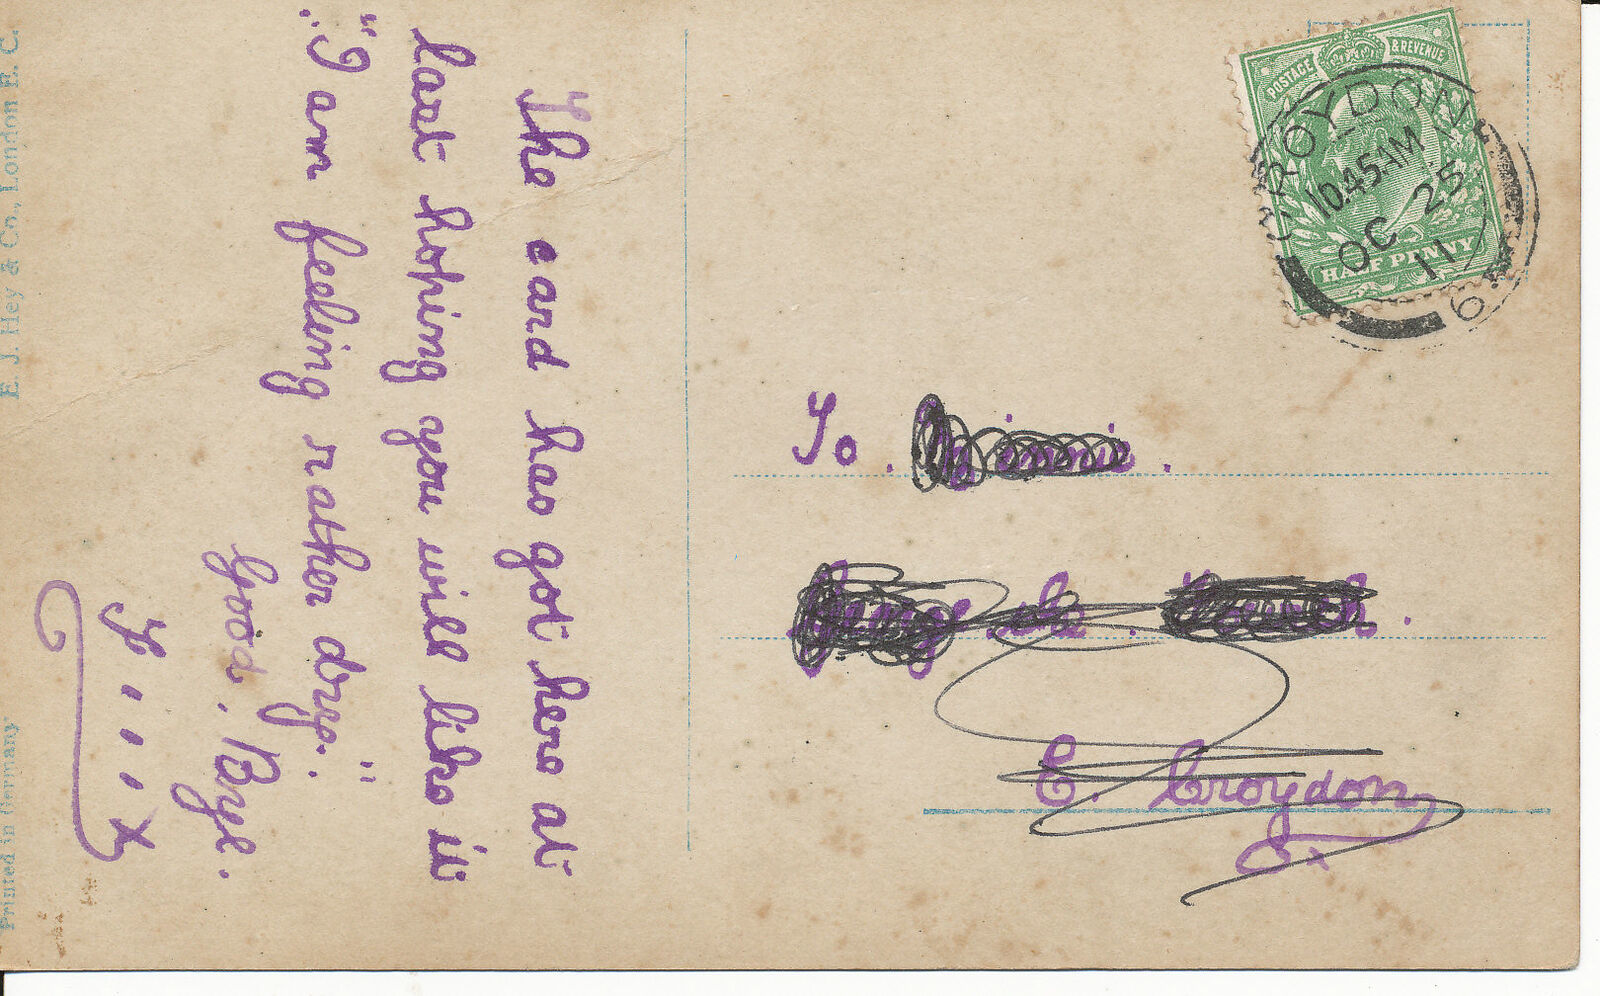 The card has got here at
last hoping you will like it
"I am feeling rather drye."
Good, Bye.
To
E. Croydon
POSTAGE & REVENUE
HALF PENNY
CROYDON
10.45AM
OC 25
11
E. J. Hey & Co., London E. C.
Printed in Germany